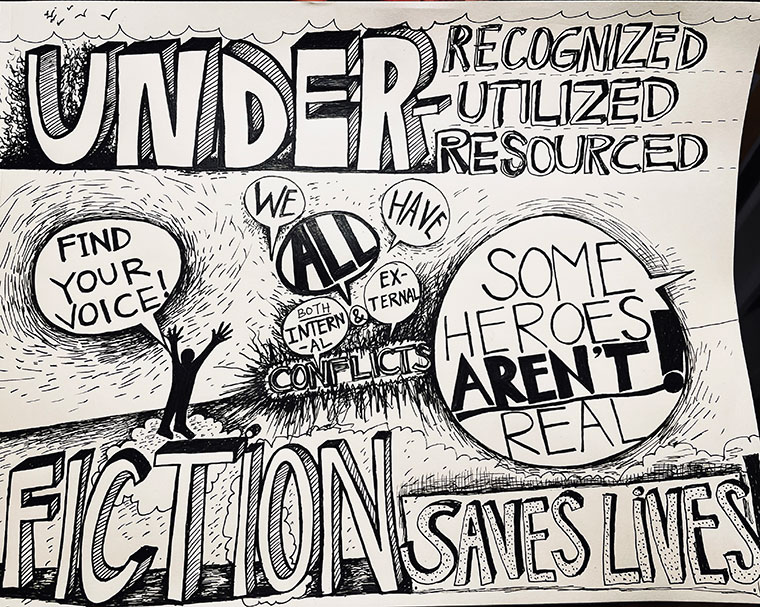 UNDER-
RECOGNIZED
UTILIZED
RESOURCED
FIND
YOUR
VOICE!
WE
ALL
HAVE
BOTH
INTERN
-AL
&
EX-
TERNAL
CONFLICTS
SOME
HEROES
AREN'T!
REAL
FICTION
SAVES LiVES